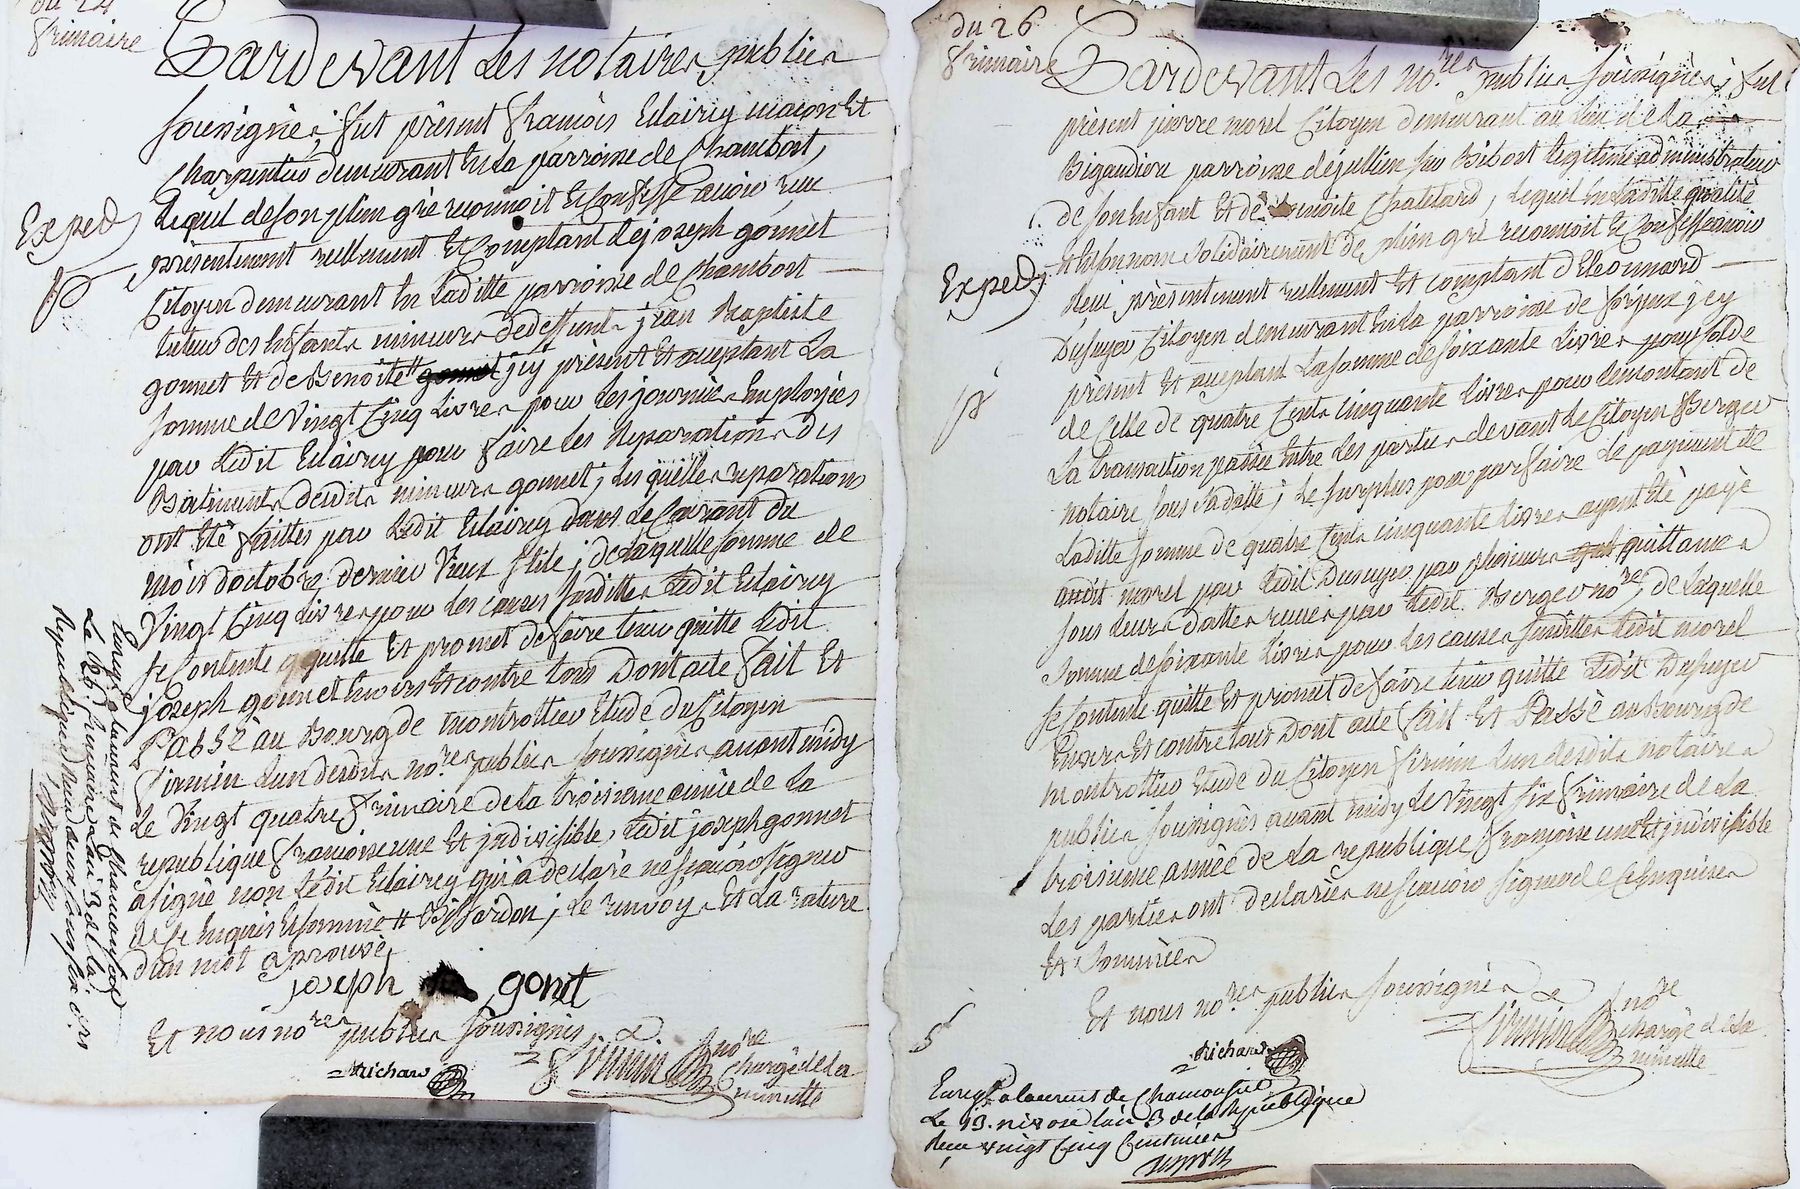 du 24
frimaire
Pardevant Les notaires publics
soussignés, fut présent françois Eclaircy macon Et
charpentier demeurant En la parroisse de Chambost,
Lequel de son plein gré reconnoit Et Confesse avoir reçu
Exped
présentement réellement Et Comptant dej joseph gonnet
Citoyen demeurant En Laditte parroisse de Chambost
tuteur des Enfants mineurs de deffunts jean Baptiste
gonnet Et de Benoite # gonnet jcy présent Et aceptant La
somme de Vingt Cinq Livres pour Les journées Employées
par Ledit Eclaircy pour faire les Reparations des
Batiments desdits mineurs gonnet, les quelles reparations
ont Eté faittes par Ledit Eclaircy dans Le Courant du
mois doctobre dernier Vieux stile; de laquelle somme de
Vingt Cinq Livres pour les causes susdittes Ledit Eclaircy
se Contente quitte Et promet de faire tenir quitte Ledit
joseph gonnet Envers Et contre tous Dont acte fait Et
Passé au Bourg de montrottier Etude du Citoyen
firmin Lun desdits no.res publics soussignés avant midy
Le Vingt quatre frimaire de la troisieme année de la
republique françoise une Et jndivisible, Ledit joseph gonnet
a signé non Ledit Eclaircy qui à declaré ne scavoir signer
de ce Enquis Et sommé # Bissardon; Le renvoy Et La rature
dun mot aprouvé,
joseph gonet
Et nous no.res publics soussignés
Richard
firmin no.re
chargé de la
minutte
Enreg. a laurent de chamousset
Le 26 frimaire lan 3 de la
Republique
du 26
frimaire
Pardevant Les no.res publics soussignés; fut
présent pierre morel Citoyen demeurant au Lieu de la
Bigaudiere parroisse dejullien sur Bibost Legitime administrateur
de son Enfant Et de Benoite Chatelard, Lequel En Laditte qualité
Et En son nom solidairement de plein gré reconnoit Et Confesse avoir
Exped
Reçu présentement réellement Et comptant d Eleonnard
Dusuyer Citoyen demeurant En la parroisse de sojeux jcy
présent Et aceptant La somme de soixante Livres pour solde
de Celle de quatre Cents Cinquante Livres pour Le montant de
La transaction passée Entre Les parties devant Le Citoyen Berger
notaire sous sa datte; Le surplus pour parfaire Le payement de
Laditte somme de quatre Cents Cinquante Livres ayant Eté payé
audit morel par Ledit Dusuyer par plusieurs quittances
sous Leurs dattes reçues par Ledit Berger no.re, de Laquelle
somme de soixante Livres pour Les causes susdittes Ledit morel
se Contente quitte Et promet de faire tenir quitte Ledit Dusuyer
Envers Et contre tous Dont acte fait Et Passé au Bourg de
montrottier Etude du Citoyen firmin Lun desdits notaires
publics soussignés avant midy Le Vingt six frimaire de La
troisieme année de La republique françoise une Et jndivisible
Les parties ont declarées ne scavoir signer de ce Enquises
Et sommées
Et nous no.res publics soussignés
Richard
firmin no.re
chargé de la
minutte
Enreg. a laurent de Chamousset
Le 13 nivose lan 3 de la Republique
Reçu vingt Cinq Centimes